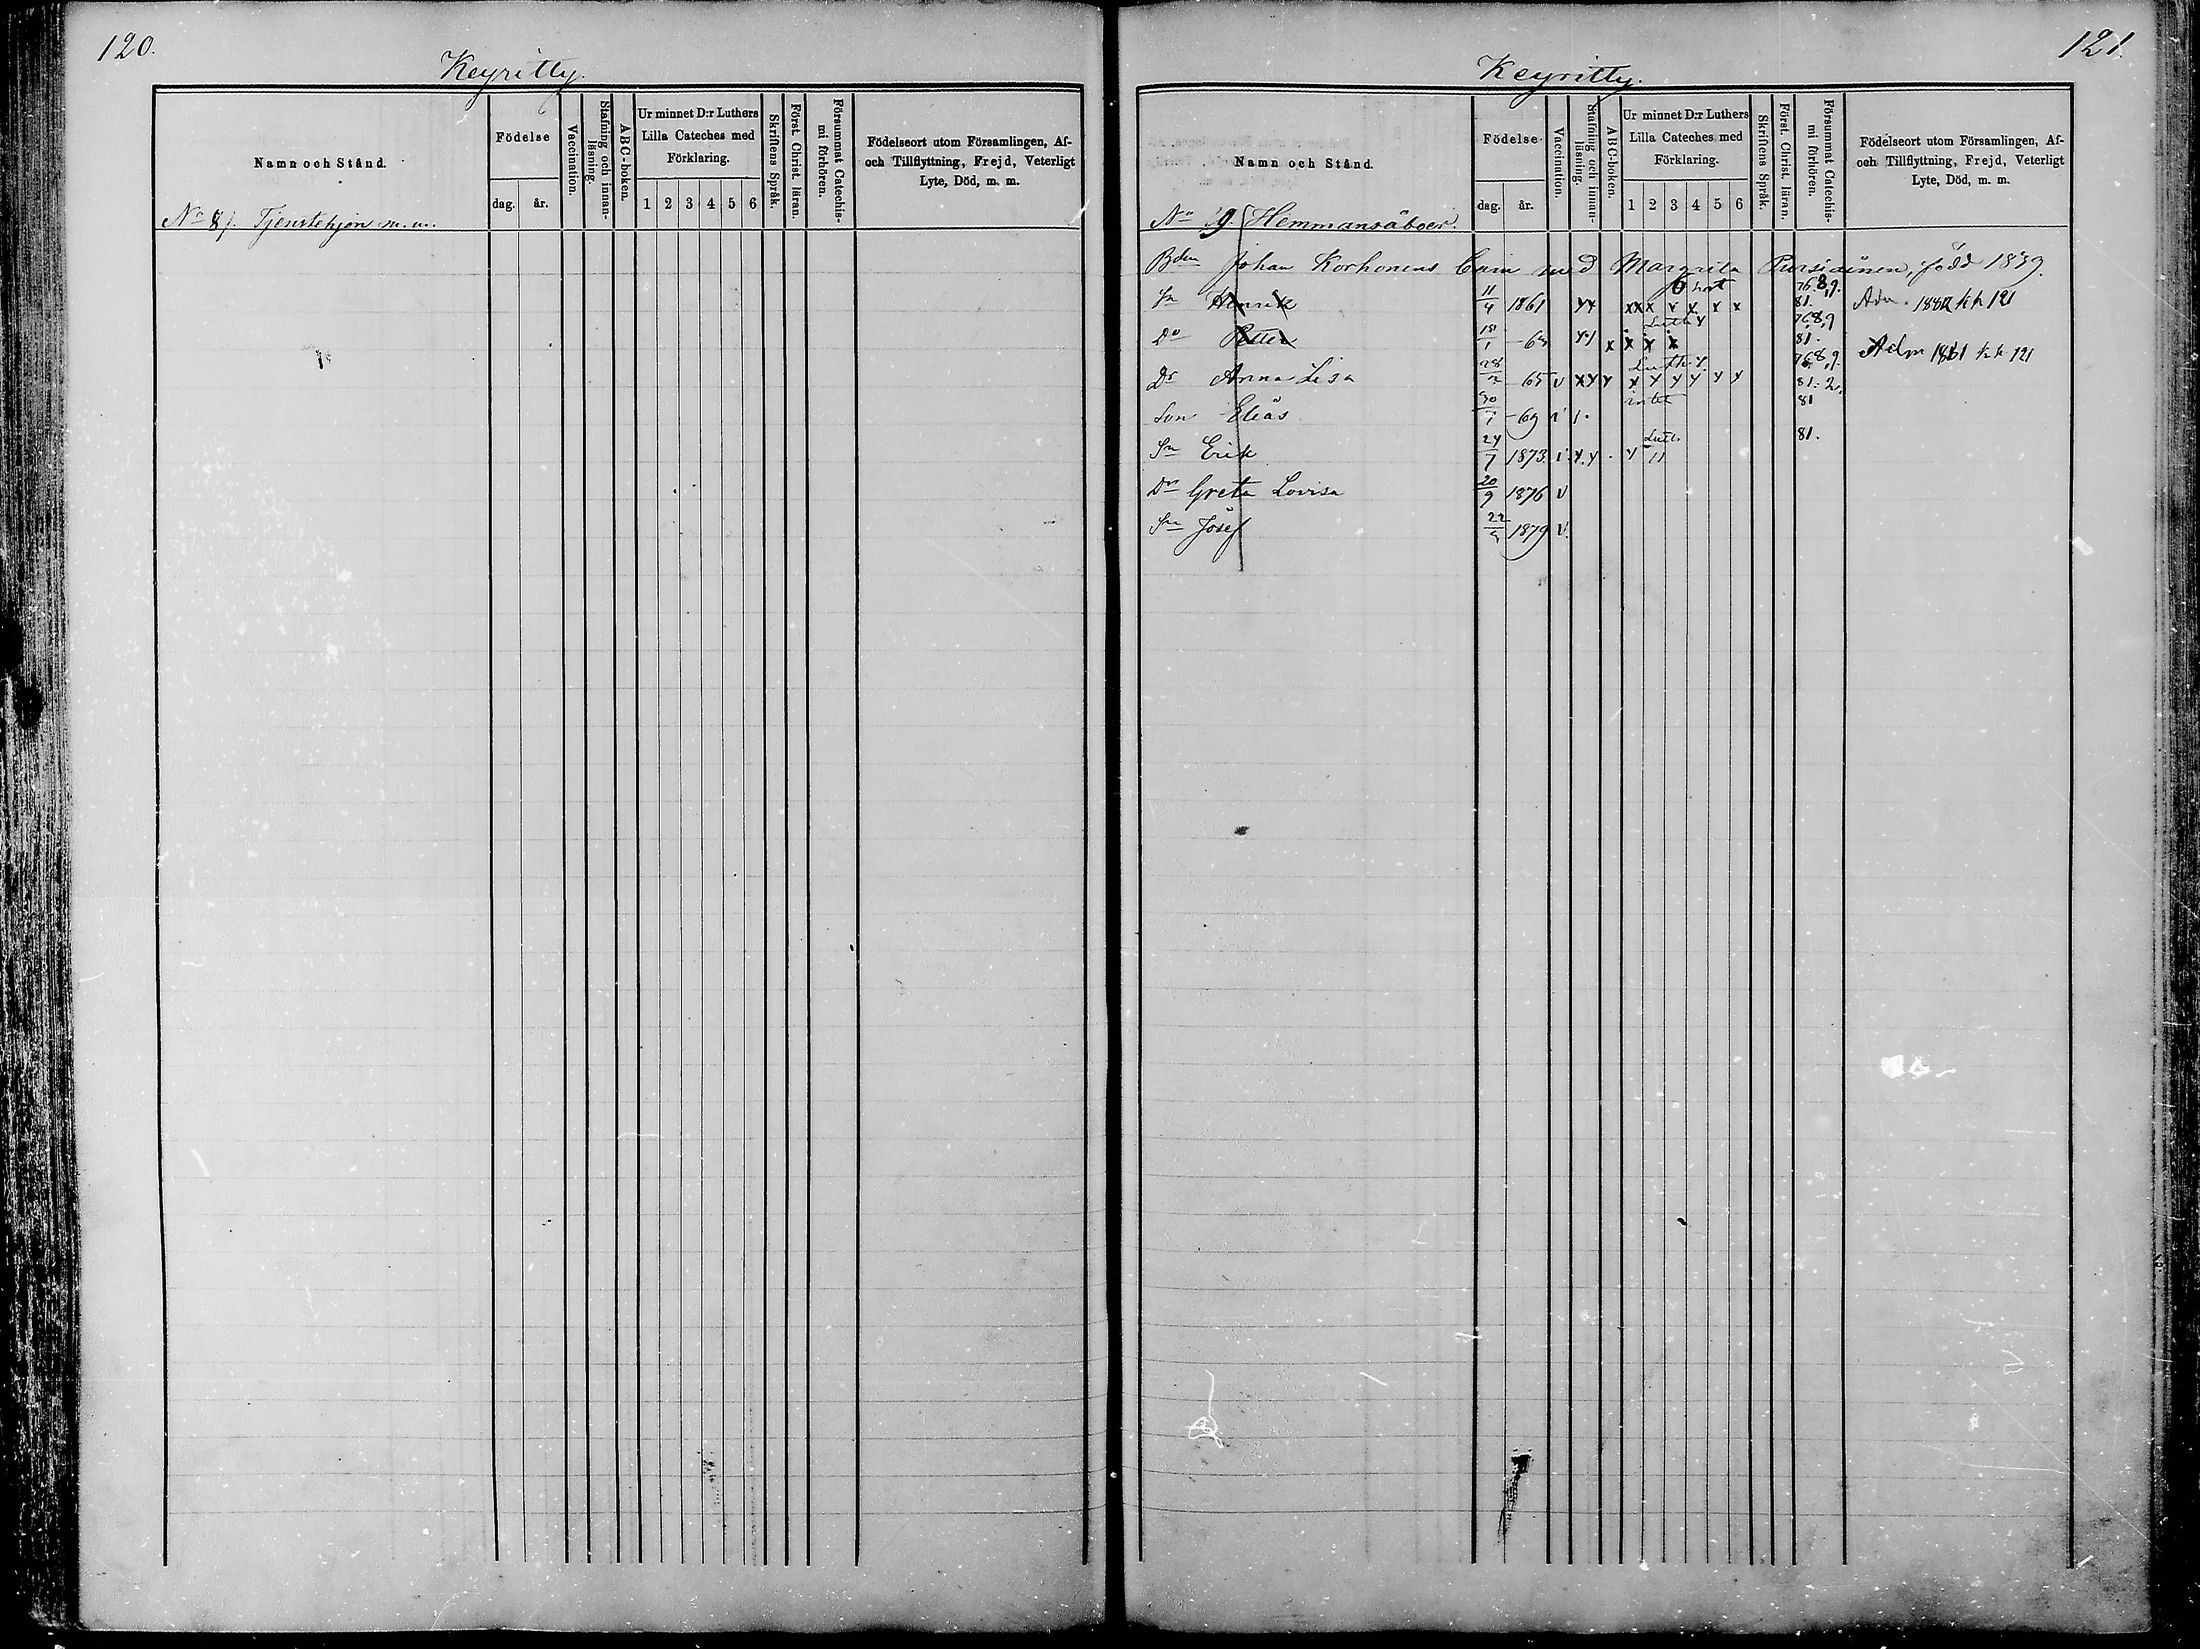 120.
Keyritty.
Namn och Stånd.
Födelse
dag. år.
Vaccination.
Stafning och innanläsning.
ABC-boken.
Ur minnet D:r Luthers Lilla Cateches med Förklaring.
1 2 3 4 5 6
Skriftens Språk.
Först. Christ. läran.
Försummat Catechismi förhören.
Födelseort utom Församlingen, Af- och Tillflyttning, Frejd, Veterligt Lyte, Död, m. m.
No 8. Tjenstehjon m.m.
121.
Keyritty.
Namn och Stånd.
Födelse
dag. år.
Vaccination.
Stafning och innanläsning.
ABC-boken.
Ur minnet D:r Luthers Lilla Cateches med Förklaring.
1 2 3 4 5 6
Skriftens Språk.
Först. Christ. läran.
Försummat Catechismi förhören.
Födelseort utom Församlingen, Af- och Tillflyttning, Frejd, Veterligt Lyte, Död, m. m.
No 9. Hemmansåboer.
Bden Johan Korhonens barn med Margrita Pursiainen, född 1839.
Sn Henrik 11/4 1861 xx x x x x x x 76.8,9. 81. Adm. 1882 kk 121
Do Petter 18/1 x x x x 76,8,9 81. Adm 1881 kk 121
Dr Anna Lisa 28/2 -65 v xx x Luth. x x x x x x 76,8,9. 81.2.
Son Elias 30/7 -69 v 81
Sn Erik 24/7 1873. v x.x Luth. 81.
Dr Greta Lovisa 20/9 1876 v
Sn Josef 1879 v.